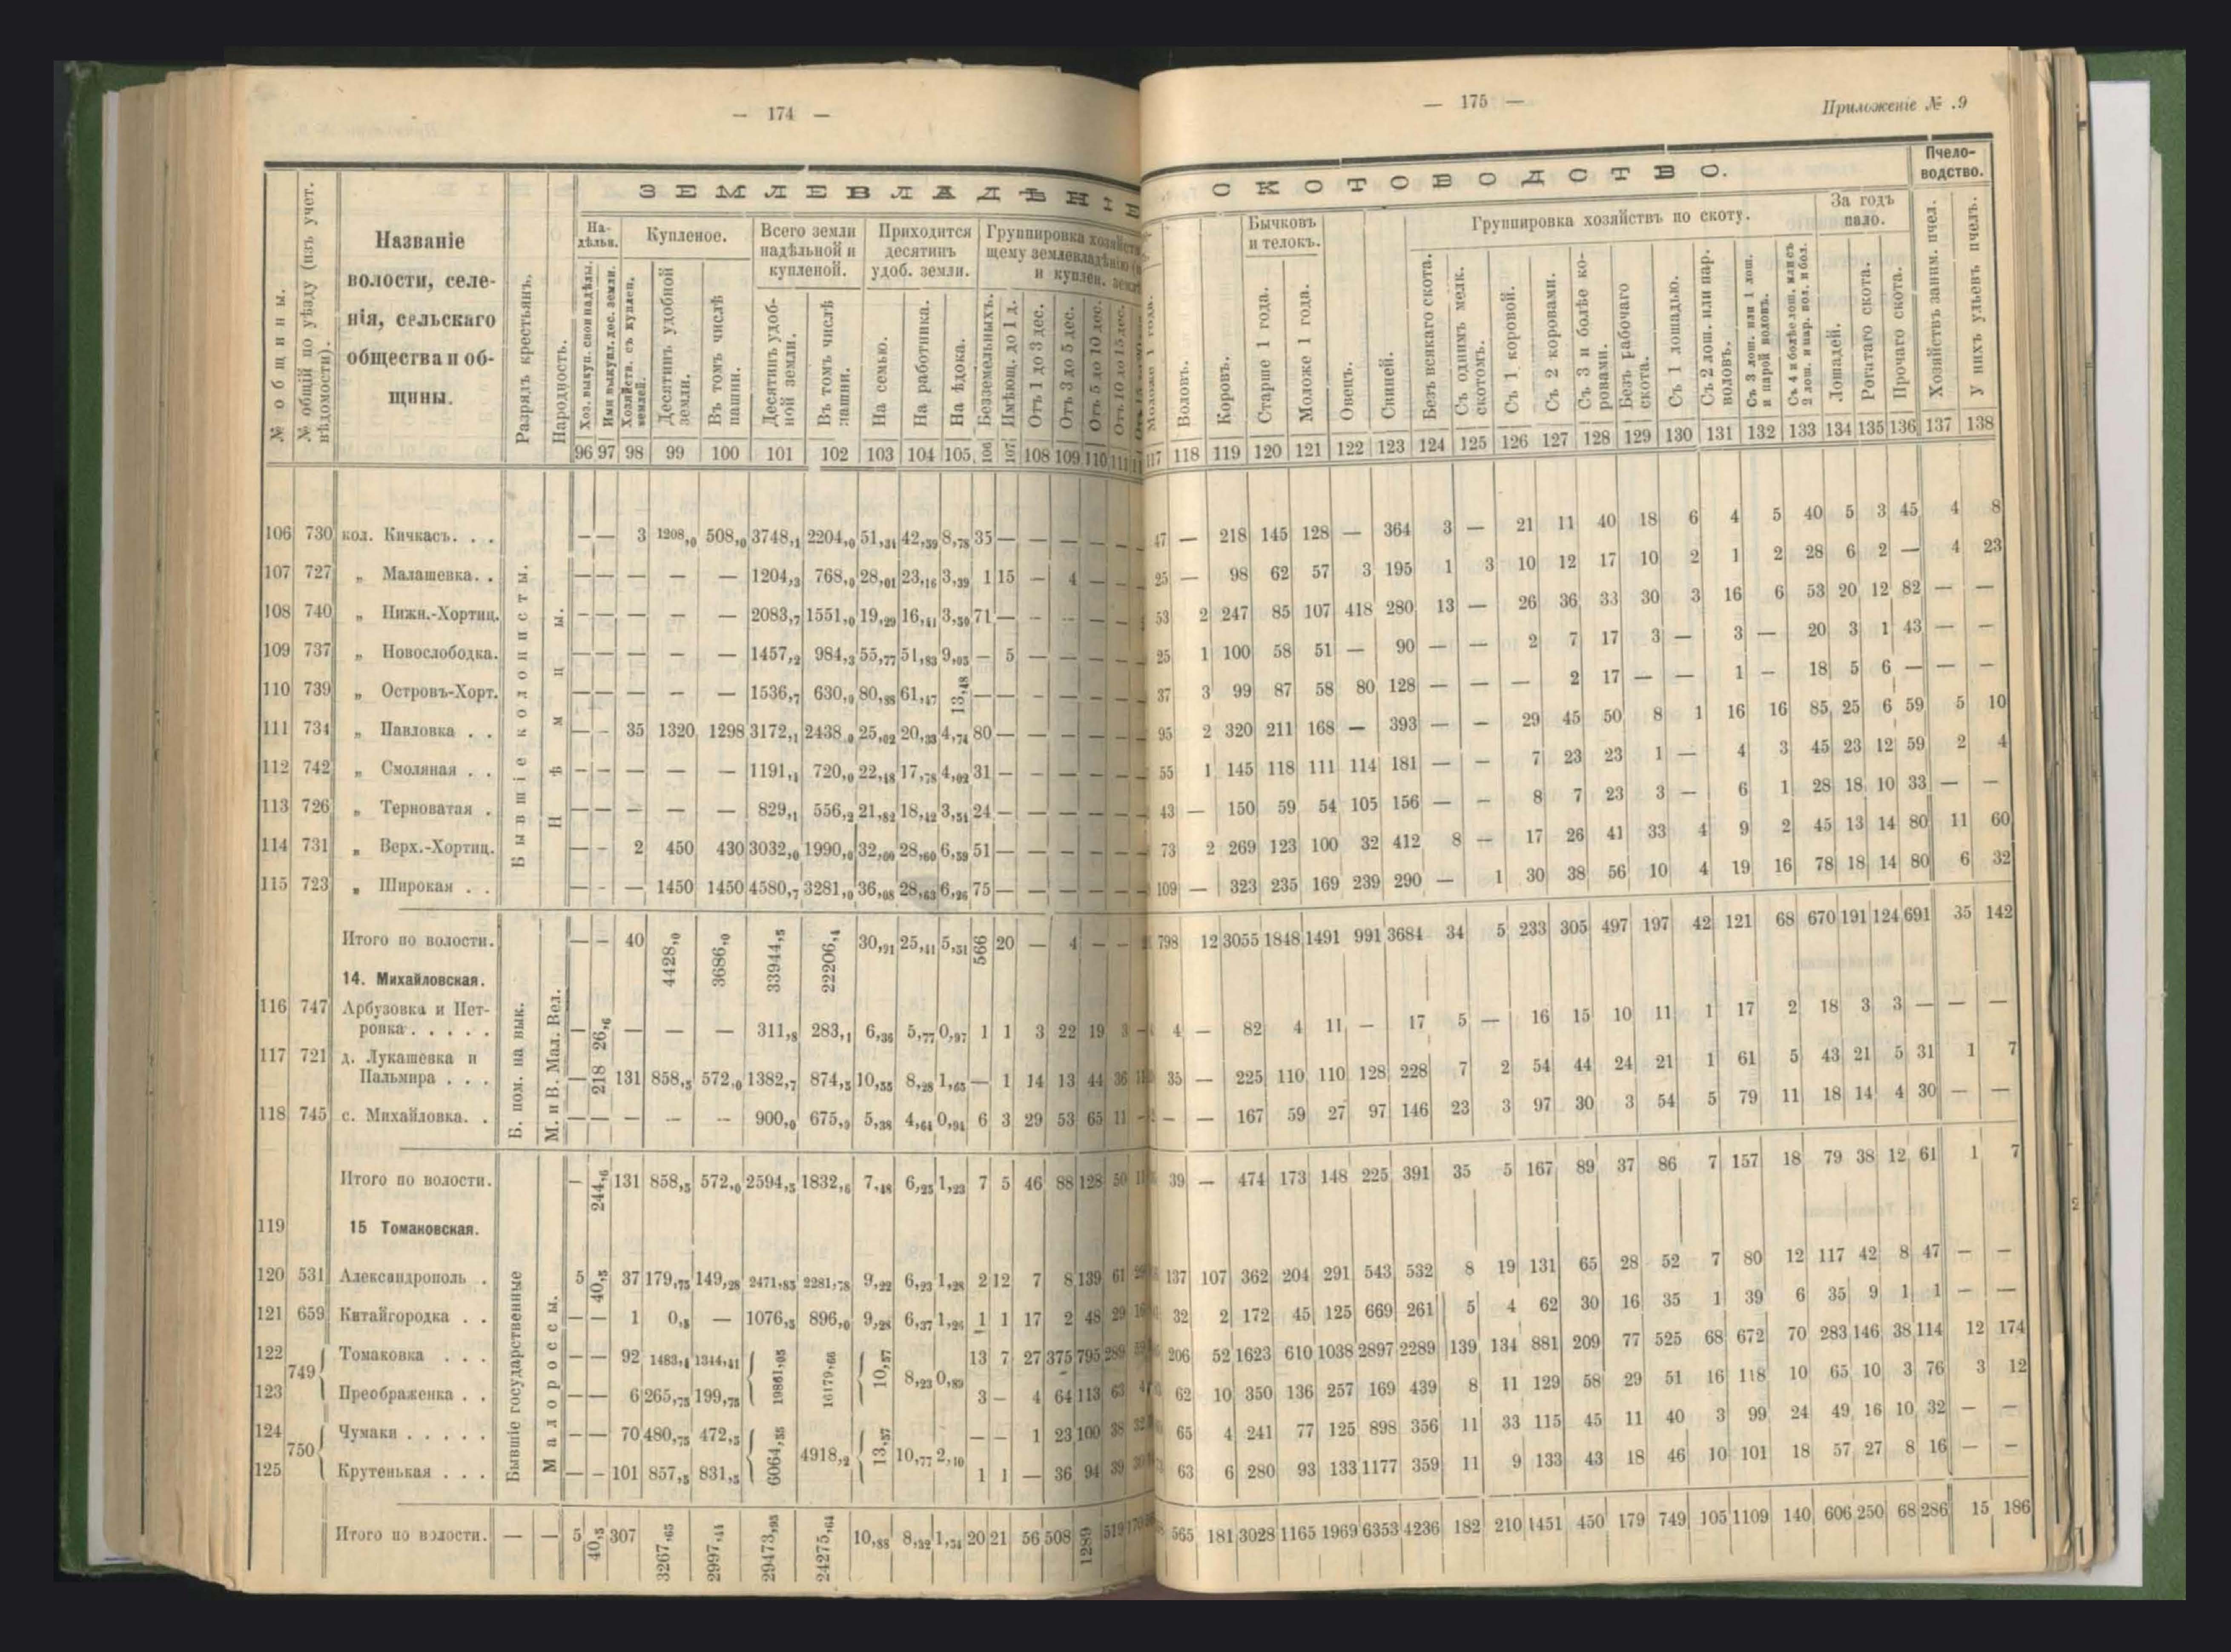 — 174 —
ЗЕМЛЕВЛАДѢНІЕ
№ общины.
№ общій по уѣзду (изъ учет. вѣдомости).
Названіе
волости, селе-
нія, сельскаго
общества и об-
щины.
Разрядъ крестьянъ.
Народность.
На-
дѣльн.
Купленое.
Всего земли
надѣльной и
купленой.
Приходится
десятинъ
удоб. земли.
Группировка хозяйств
щему землевладѣнію
и куплен. земл
Хоз. выкуп. свои надѣлы.
Ими выкупл. дес. земли.
Хозяйств. съ куплен. землей.
Десятинъ удобной земли.
Въ томъ числѣ пашни.
Десятинъ удоб-
ной земли.
Въ томъ числѣ пашни.
На семью.
На работника.
На ѣдока.
Безземельныхъ.
Имѣющ. до 1 д.
Отъ 1 до 3 дес.
Отъ 3 до 5 дес.
Отъ 5 до 10 дес.
Отъ 10 до 15 дес.
96 97 98 99 100 101 102 103 104 105 106 107 108 109 110 111
Бывшіе колонисты.
Нѣмцы.
106 730 кол. Кичкасъ. . . — — 3 1208,0 508,0 3748,1 2204,0 51,34 42,59 8,78 35 — — — — —
107 727 „ Малашевка. . — — — — — 1204,3 768,0 28,01 23,16 3,39 1 15 — 4 — —
108 740 „ Нижн.-Хортиц. — — — — — 2083,7 1551,0 19,29 16,41 3,50 71 — — — — —
109 737 „ Новослободка. — — — — — 1457,2 984,3 55,77 51,83 9,05 — 5 — — — —
110 739 „ Островъ-Хорт. — — — — — 1536,7 630,0 80,88 61,47 13,48 — — — — — —
111 734 „ Павловка . . — — 35 1320 1298 3172,1 2438,0 25,02 20,33 4,74 80 — — — — —
112 742 „ Смоляная . . — — — — — 1191,4 720,0 22,48 17,78 4,02 31 — — — — —
113 726 „ Терноватая . — — — — — 829,1 556,2 21,82 18,42 3,54 24 — — — — —
114 731 „ Верх.-Хортиц. — — 2 450 430 3032,0 1990,0 32,60 28,60 6,59 51 — — — — —
115 723 „ Широкая . . — — — 1450 1450 4580,7 3281,0 36,08 28,63 6,26 75 — — — — —
Итого по волости. — — 40 4428,0 3686,0 33944,5 22206,4 30,91 25,41 5,51 566 20 — 4 — —
14. Михайловская.
Б. пом. на вык.
М. и В. Мал. Вел.
116 747 Арбузовка и Пет-
ровка . . . . . — 26,6 — — — 311,8 283,1 6,36 5,77 0,97 1 1 3 22 19 3
117 721 д. Лукашевка и
Пальмира . . . — 218 131 858,5 572,0 1382,7 874,5 10,55 8,28 1,65 — 1 14 13 44 36
118 745 с. Михайловка. . — — — — — 900,0 675,0 5,38 4,64 0,94 6 3 29 53 65 11
Итого по волости. — 244,6 131 858,5 572,0 2594,5 1832,6 7,48 6,25 1,23 7 5 46 88 128 50
119 15 Томаковская.
Бывшіе государственные
Малороссы.
120 531 Александрополь . 5 40,5 37 179,75 149,28 2471,85 2281,78 9,22 6,23 1,28 2 12 7 8 139 61
121 659 Китайгородка . . — — 1 0,8 — 1076,5 896,0 9,28 6,37 1,26 1 1 17 2 48 29
122 749 Томаковка . . . — — 92 1483,4 1344,41 19861,05 16179,66 10,57 8,23 0,89 13 7 27 375 795 289
123 Преображенка . . — — 6 265,75 199,75 3 — 4 64 113 63
124 750 Чумаки . . . . . — — 70 480,75 472,5 6064,55 4918,2 13,57 10,77 2,10 — — 1 23 100 38
125 Крутенькая . . . — — 101 857,5 831,5 1 1 — 36 94 39
Итого по волости. — — 5 40,5 307 3267,65 2997,44 29473,95 24275,64 10,88 8,32 1,34 20 21 56 508 1289 519
— 175 —
Приложеніе № .9
СКОТОВОДСТВО.
Пчело-
водство.
Бычковъ
и телокъ.
Группировка хозяйствъ по скоту.
За годъ
пало.
Моложе 1 года.
Воловъ.
Коровъ.
Старше 1 года.
Моложе 1 года.
Овецъ.
Свиней.
Безъ всякаго скота.
Съ однимъ мелк. скотомъ.
Съ 1 коровой.
Съ 2 коровами.
Съ 3 и болѣе ко-
ровами.
Безъ рабочаго скота.
Съ 1 лошадью.
Съ 2 лош. или пар. воловъ.
Съ 3 лош. или 1 лош. и парой воловъ.
Съ 4 и болѣе лош. или съ 2 лош. и пар. вол. и бол.
Лошадей.
Рогатаго скота.
Прочаго скота.
Хозяйствъ заним. пчел.
У нихъ ульевъ пчелъ.
117 118 119 120 121 122 123 124 125 126 127 128 129 130 131 132 133 134 135 136 137 138
47 — 218 145 128 — 364 3 — 21 11 40 18 6 4 5 40 5 3 45 4 8
25 — 98 62 57 3 195 1 3 10 12 17 10 2 1 2 28 6 2 — 4 23
53 2 247 85 107 418 280 13 — 26 36 33 30 3 16 6 53 20 12 82 — —
25 1 100 58 51 — 90 — — 2 7 17 3 — 3 — 20 3 1 43 — —
37 3 99 87 58 80 128 — — — 2 17 — — 1 — 18 5 6 — — —
95 2 320 211 168 — 393 — — 29 45 50 8 1 16 16 85 25 6 59 5 10
55 1 145 118 111 114 181 — — 7 23 23 1 — 4 3 45 23 12 59 2 4
43 — 150 59 54 105 156 — — 8 7 23 3 — 6 1 28 18 10 33 — —
73 2 269 123 100 32 412 8 — 17 26 41 33 4 9 2 45 13 14 80 11 60
109 — 323 235 169 239 290 — 1 30 38 56 10 4 19 16 78 18 14 80 6 32
798 12 3055 1848 1491 991 3684 34 5 233 305 497 197 42 121 68 670 191 124 691 35 142
4 — 82 4 11 — 17 5 — 16 15 10 11 1 17 2 18 3 3 — — —
35 — 225 110 110 128 228 7 2 54 44 24 21 1 61 5 43 21 5 31 1 7
— — 167 59 27 97 146 23 3 97 30 3 54 5 79 11 18 14 4 30 — —
39 — 474 173 148 225 391 35 5 167 89 37 86 7 157 18 79 38 12 61 1 7
137 107 362 204 291 543 532 8 19 131 65 28 52 7 80 12 117 42 8 47 — —
32 2 172 45 125 669 261 5 4 62 30 16 35 1 39 6 35 9 1 1 — —
206 52 1623 610 1038 2897 2289 139 134 881 209 77 525 68 672 70 283 146 38 114 12 174
62 10 350 136 257 169 439 8 11 129 58 29 51 16 118 10 65 10 3 76 3 12
65 4 241 77 125 898 356 11 33 115 45 11 40 3 99 24 49 16 10 32 — —
63 6 280 93 133 1177 359 11 9 133 43 18 46 10 101 18 57 27 8 16 — —
565 181 3028 1165 1969 6353 4236 182 210 1451 450 179 749 105 1109 140 606 250 68 286 15 186